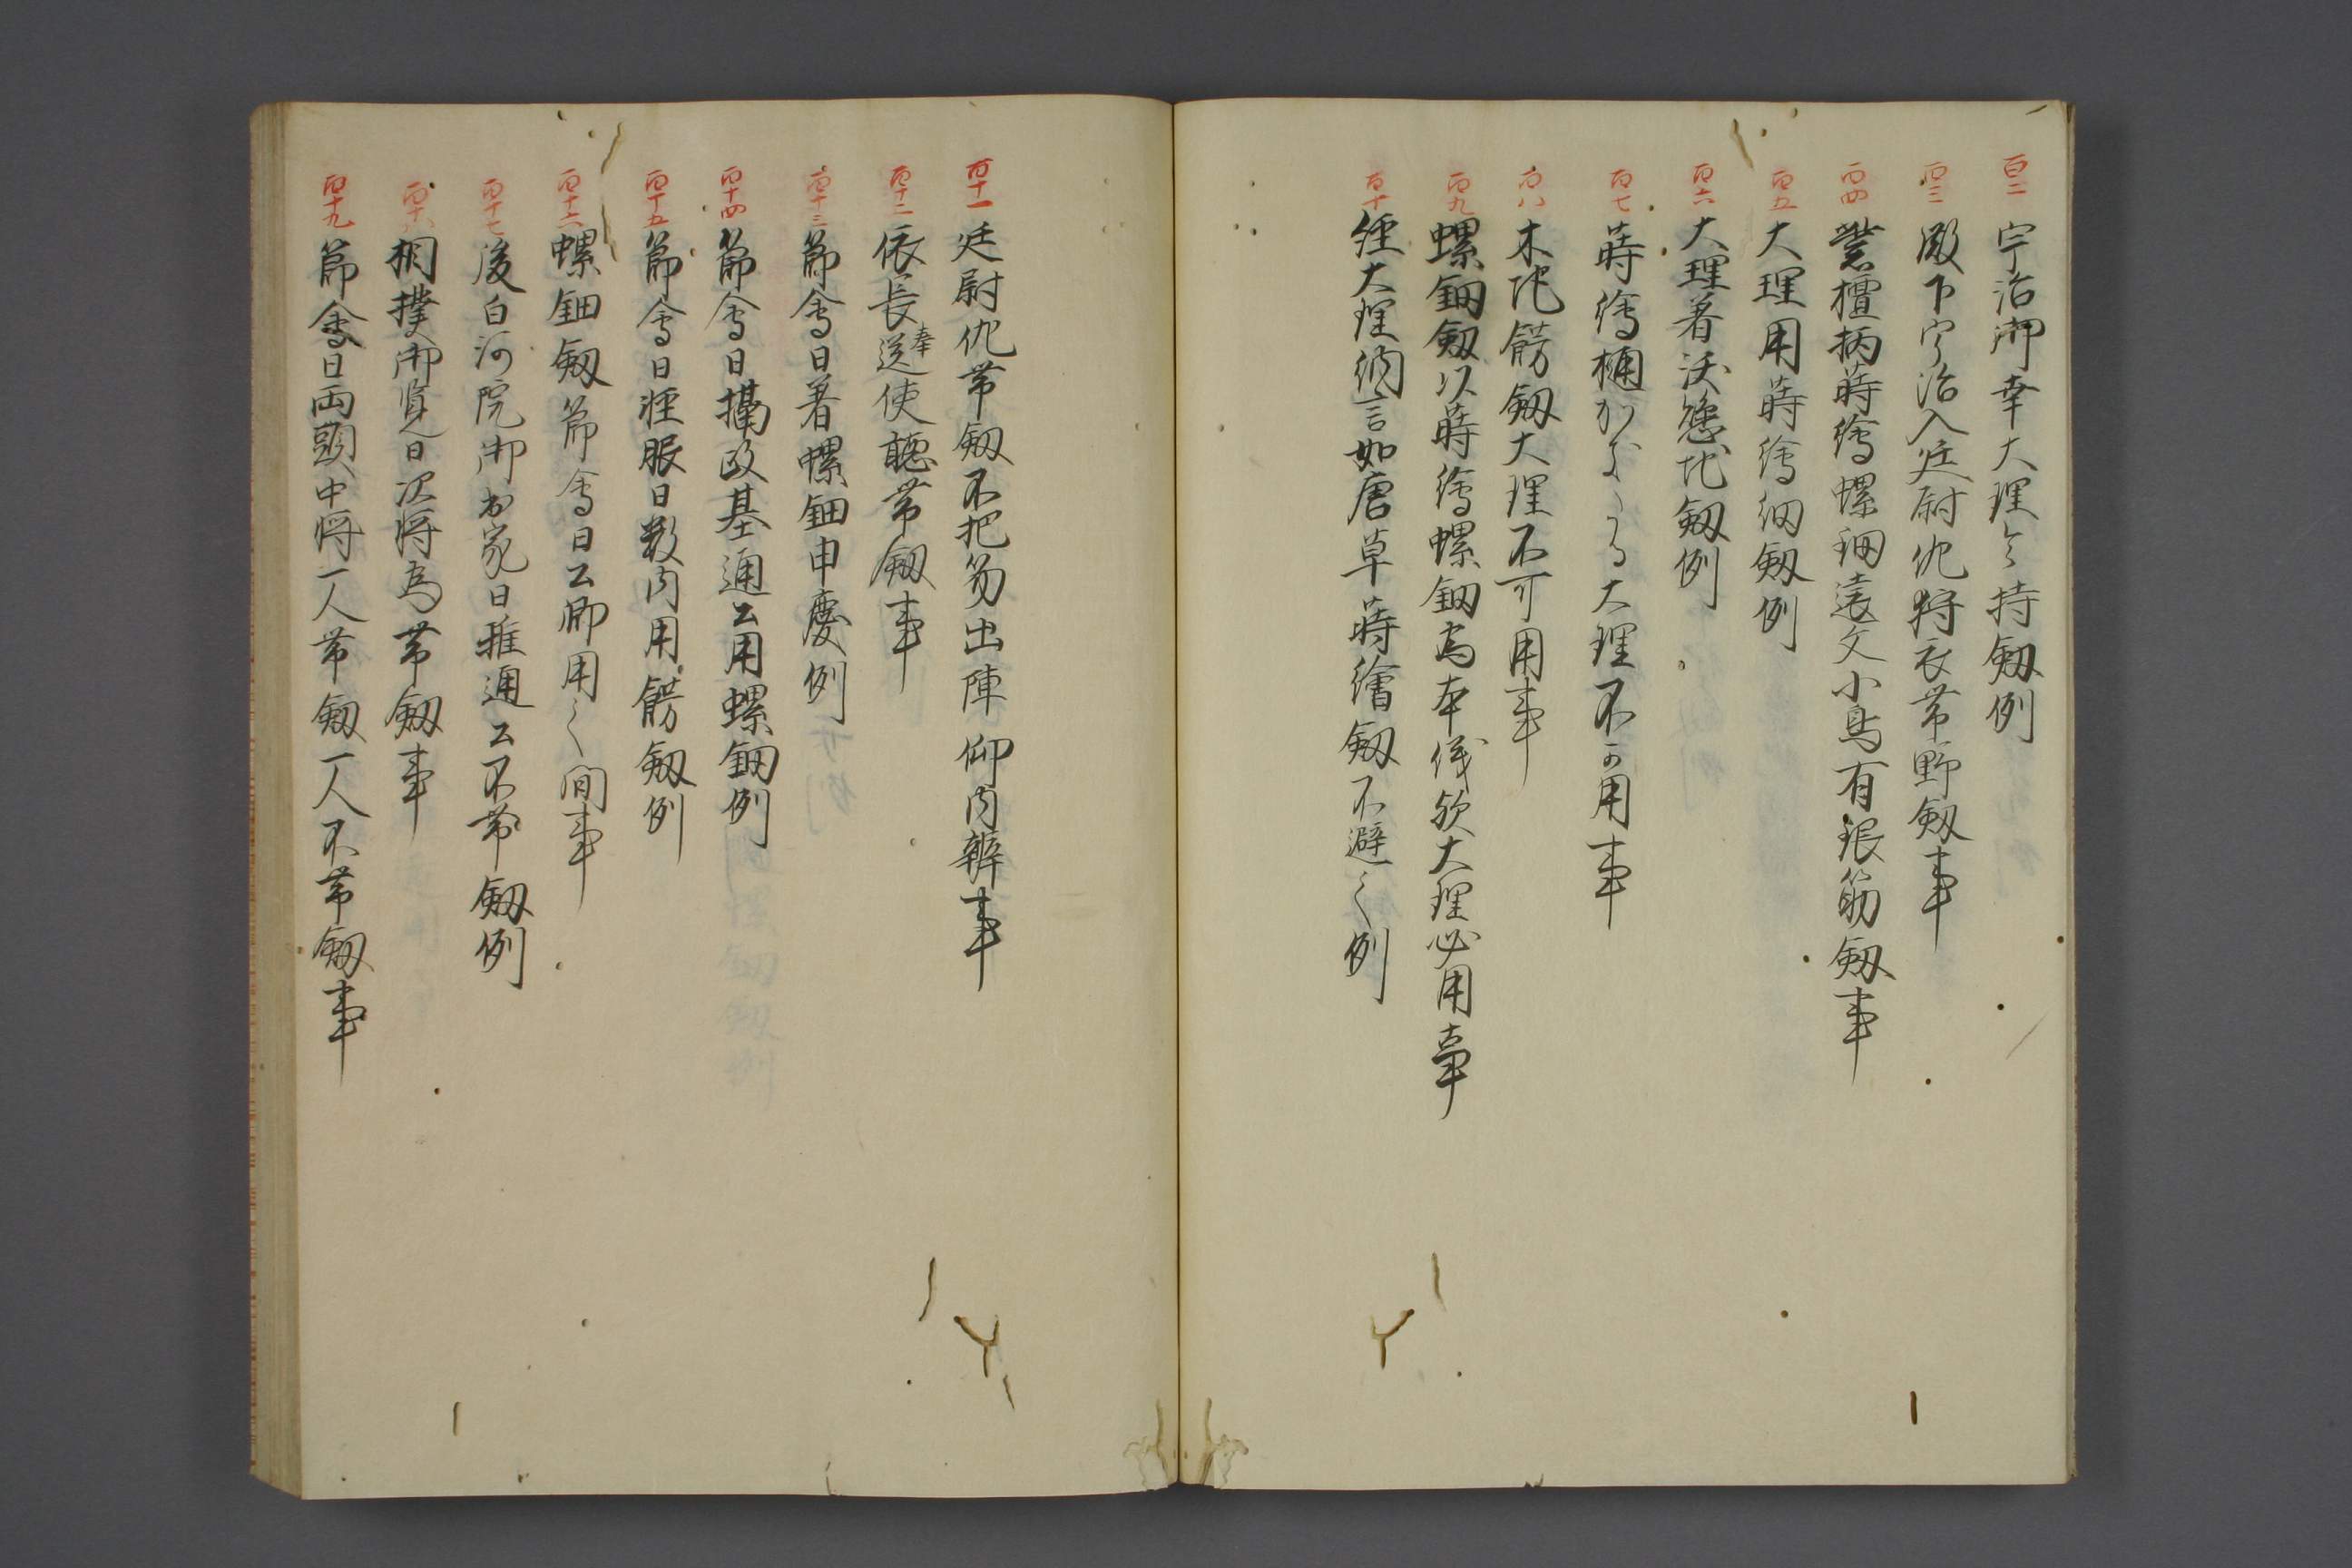 百二 宇治御幸大理令持劔例
百三 殿下宇治入廷尉佐狩衣帯野劔事
百四 紫檀柄蒔繪螺鈿遠文小鳥有琩筋劔事
百五 大理用蒔繪細劔例
百六 大理著沃懸地劔例
百七 蒔繪樋 大理不可用事
百八 木地餝劔大理不可用事
百九 螺鈿劔以蒔繪螺鈿為本儀欤大理必用事
百十 経大理納言如唐草蒔繪劔不避之例
百十一 廷尉佐帯劔不把笏出陣仰内辨事
百十二 依長奉送使聴帯劔事
百十三 節會日著螺鈿申慶例
百十四 節會日摂政基通公用螺鈿例
百十五 節會日軽服日数内用餝劔例
百十六 螺鈿劔節會日公卿用之間事
百十七 後白河院御出家日雅通公不帯劔例
百十八 相撲御覧日次将為帯劔事
百十九 節會日両頭中将一人帯劔一人不帯劔事